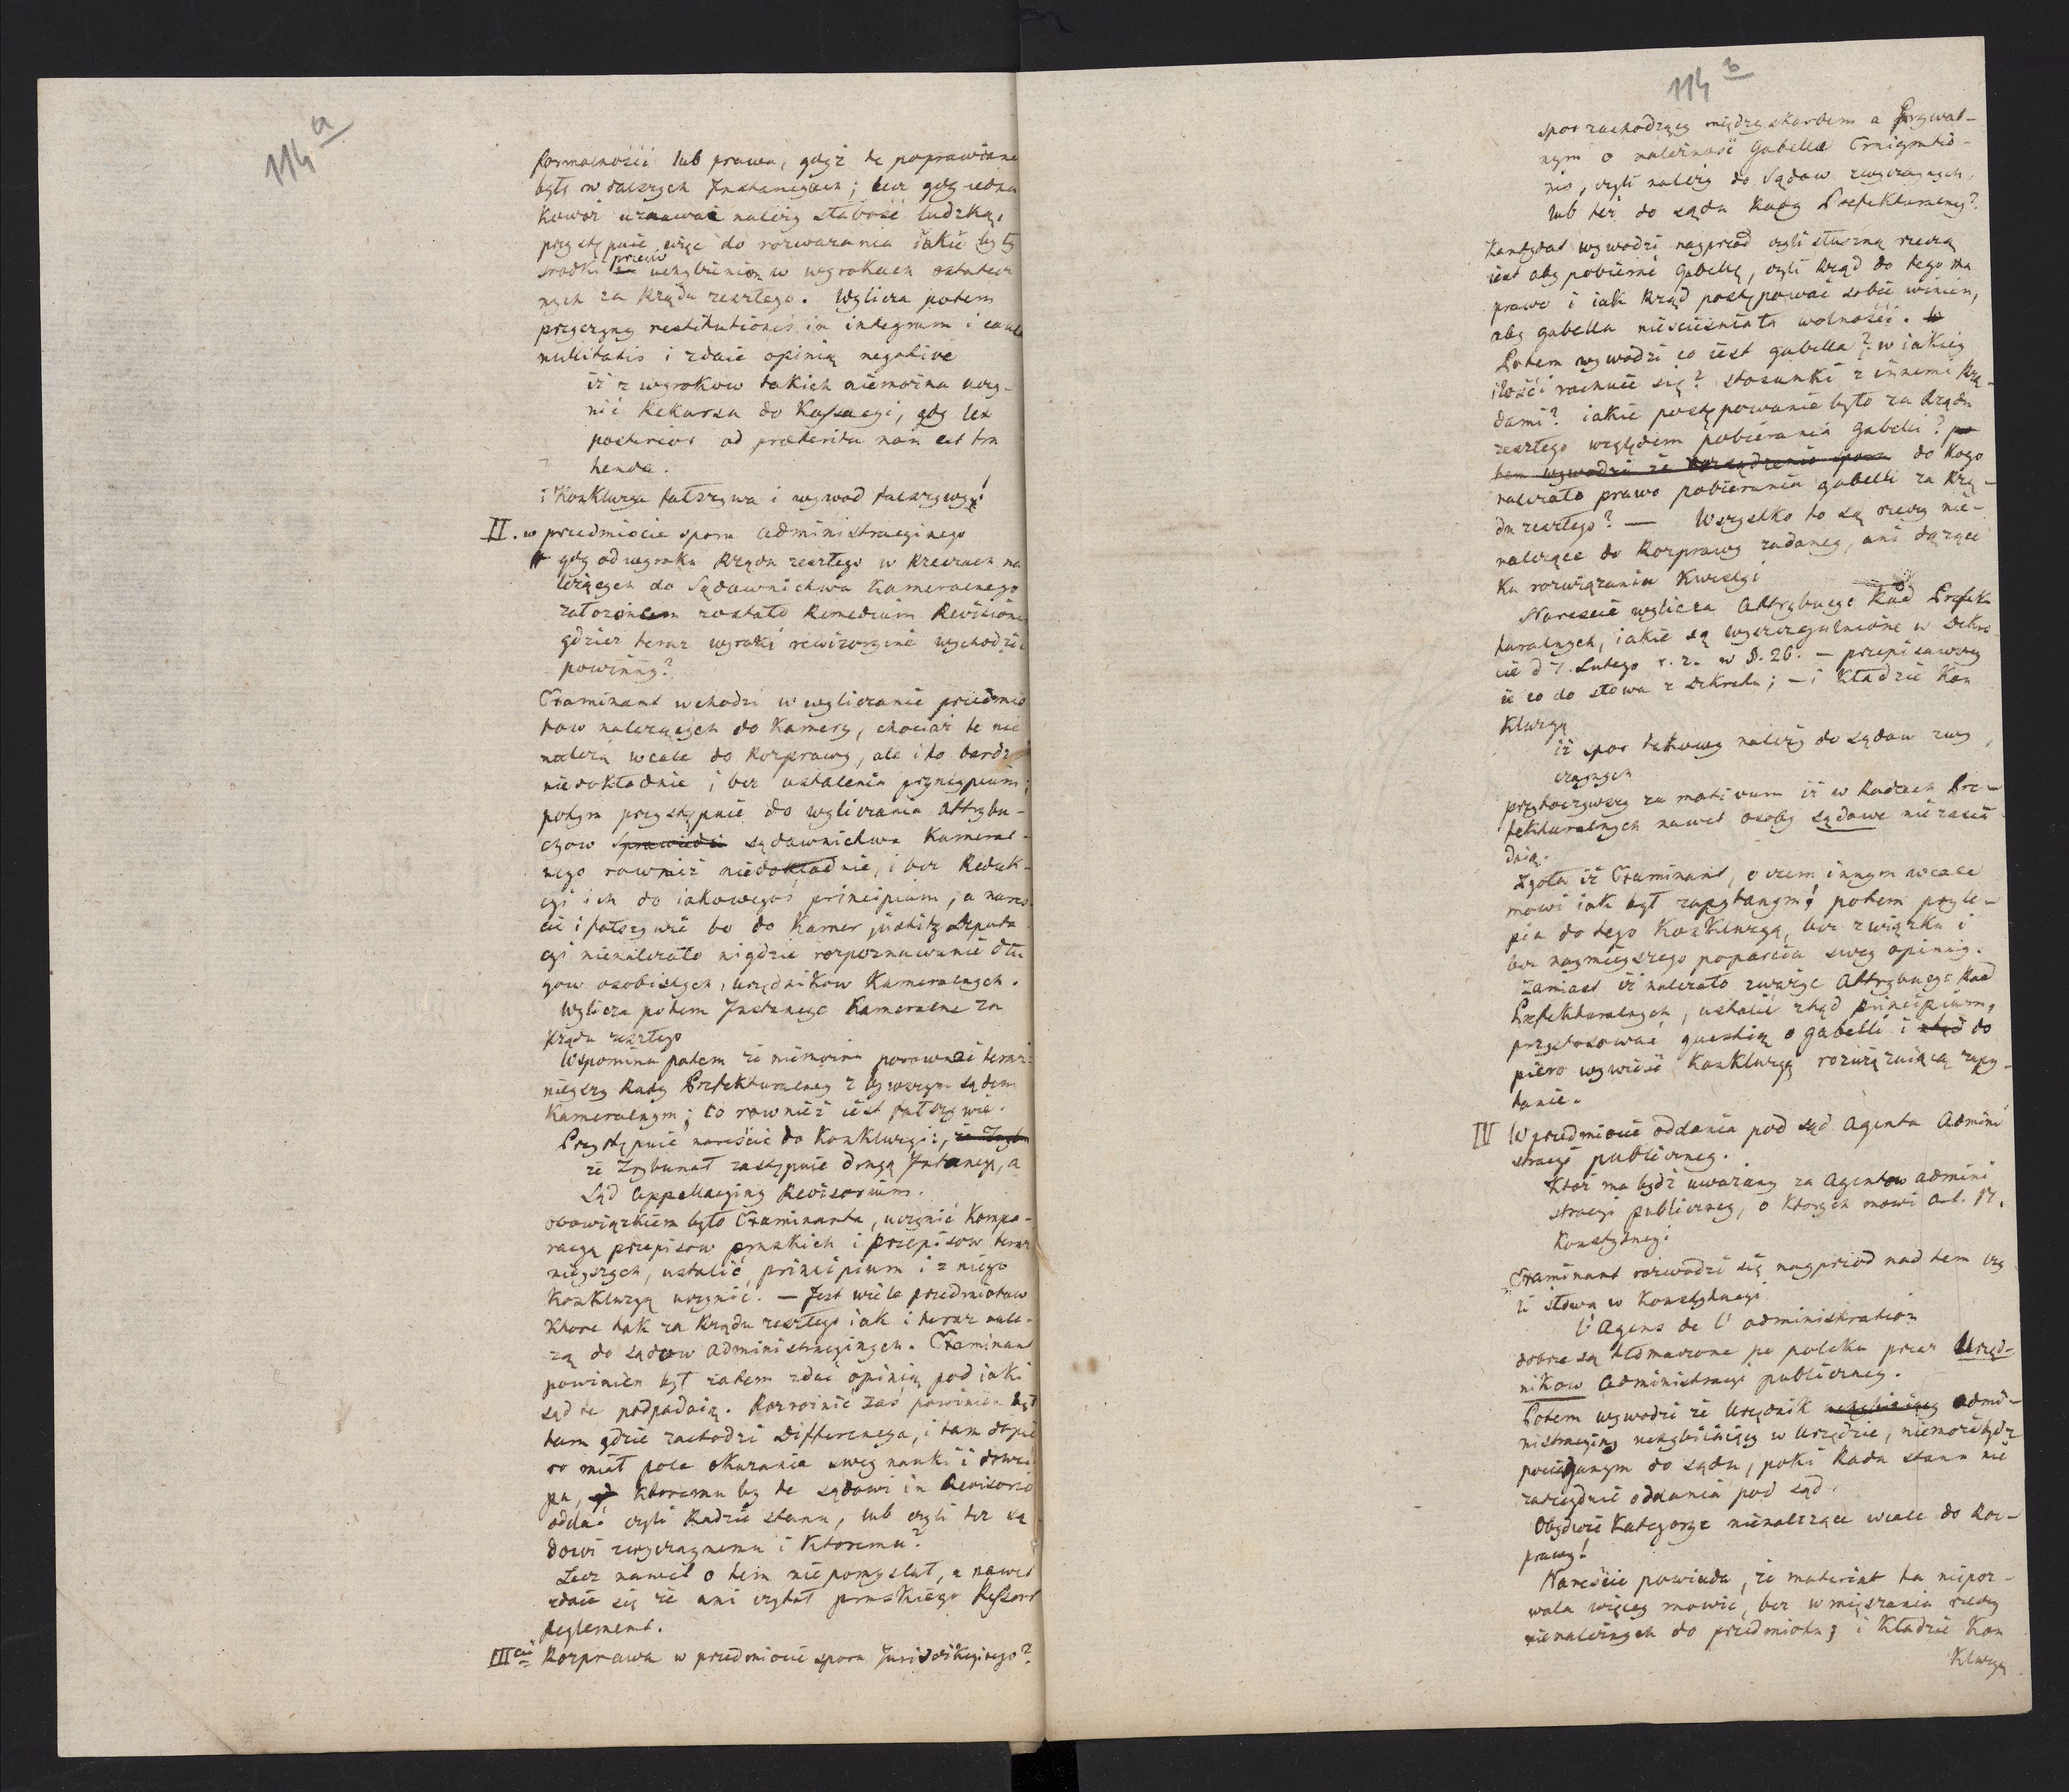 114 a
formalności lub prawa, gdyż te poprawione
były w dalszych Instancyach; lecz gdy iedna
kowoż uznawać należy słabość ludzką,
przystępuie więc do rozwazania iakie były
srodki przeciw uchybieniom w wyrokach ostatecz
nych za Rządu zeszłego. Wylicza potem
przyczyny restitutionis in integrum i causae
nullitatis i zdaie opinią negative
iż z wyrokow takich niemożna uczy-
nić Rekursu do Kassacyi, gdy lex
posterior ad praeterita non est tra
henda.
: Konkluzya fałszywa i wywod fałszywy!
II. w przedmiocie sporu administracyinego
gdy od wyroku Rządu zeszłego w Rzeczach na
leżących do Sądownichwa Kameralnego
założonem zostało Remedium Revisionis
gdzież teraz wyroki rewizoryine wychodzić
powinny?
Examinant wchodzi w wyliczanie przedmio
tow należących do Kamery, chociaż te nie
należą wcale do Rozprawy, ale i to bardzo
niedokładnie i bez ustalenia pryncypium;
potym przystępuie do wyliczania Attrybu-
cyow Sprawiedli sądownichwa Kameral-
nego rownież niedokładnie, i bez Reduk-
cyi ich do iakowegoś principium, a nares
cie i fałszywie bo do Kamer justitz Deputa
cyi nienależało nigdzie rozpoznawanie dłu
gow osobistych, urzędnikow Kameralnych.
Wylicza potem Instancye Kameralne za
Rządu zeszłego
Wspomina potem że niemożna porownać teraz-
nieyszy Rady Prefekturalney z bywszym sądem
Kameralnym; co rownież iest fałszywie.
Przystępuie nareście do Konkluzyi:, że Tryb
że Trybunał zastępuie drugą Instancyą, a
Sąd Appellacyiny Revisorium.
obowiązkiem było Examinanta, uczynić Kompa-
racyą przepisow pruskich i przepisow teraz
nieyszych, ustalić principium i z niego
Konkluzyą uczynić. — Jest wiele przedmiotow
ktore tak za Rządu zeszłego iak i teraz nale-
żą do sądow administracyinych. Examinant
powinien był zatem zdać opinią pod iaki
sąd te podpadaią. Rozrożnić zaś powinien był
tam gdzie zachodzi Differencya, i tam dopie
ro miał pole okazania swey nauki i dowci
pu, ktoremu by te sądowi in Revisorio
oddać czyli Radzie stanu, lub czyli też są
dowi zwyczaynemu i Ktoremu?
Lecz nawet o tem nie pomyslał, a nawet
zdaie się że ani czytał pruskiego Ressort
Reglement.
IIIcie Rozprawa w przedmiocie sporu Jurisdikcyinego?
114 b
spor zachodzący między skarbem a Prywat-
nym o należność Gabellæ Emigratio-
nis, czyli należy do Sądow zwyczaynych,
lub też do sądu Rady Prefekturalney?
Kandydat wywodzi nayprzod czyli słuszną rzeczą
iest aby pobierać Gabellę, czyli Rząd do tego ma
prawo i iak Rząd postępować sobie winien,
aby gabella nieścieśniała wolności.
Potem wywodzi co iest gabella? w iakiey
ilości rachuie się? stosunki z innemi Rzą-
dami? iakie postępowanie było za Rządu
zeszłego względem pobierania Gabelli? po
tem wywodzi że rozsądzenie sporu do Kogo
należało prawo pobierania gabelli za Rzą-
du zeszłego? — Wszystko to są rzeczy nie-
należące do Rozprawy zadaney, ani dążące
Ku rozwiązaniu Kwestyi
Nareście wylicza Attrybucye Rad Prefek
turalnych, iakie są wyszczegulnione w Dekre
cie d 7. Lutego r. z. w §. 26. — przepisawszy
ie co do słowa z dekretu; — i Kładzie Kon
kluzyą
iż spor takowy należy do sądow zwy
czaynych
przytoczywszy za motivum iż w Radach Pre-
fekturalnych nawet osoby sądowe nie zasia
daią.
Zgoła iż Examinant, o czem innym wcale
mowi iak był zapytanym! potem przyle-
pia do tego Konkluzyą, bez związku i
bez naymnieyszego poparcia swey opinii.
Zamiast iż należało zważyć Attrybucye Rad
Prefekturalnych, ustalić ztąd principium,
przystosować questią o gabelli i ztąd do
piero wywieść Konkluzyą rozwięzuiącą zapy-
tanie.
IV W przedmiocie oddania pod sąd Agenta Admini
stracyi publiczney.
Ktoż ma bydź uważany za Agentow admini
stracyi publiczney, o ktorych mowi Art. 17.
Konstytucyi
Examinant rozwodzi się nayprzod nad tem czy
li słowa w Konstytucyi
l'Agens de l'administration
dobrze są tłomaczone po polsku przez Urzęd-
nikow Administracyi publiczney.
Potem wywodzi że Urzędnik uchybiaiący admi-
nistracyiny uchybiaiący w Urzędzie, niemoże bydź
pociąganym do sądu, poki Rada stanu nie
zarządzi oddania pod sąd.
Obydwie Kategorye nienależące wcale do Roz-
prawy!
Nareście powiada, że materiał ta niepoz-
wala więcey mowić, bez wmięszania rzeczy
nienależnych do przedmiotu; i Kładzie Kon
kluzyą